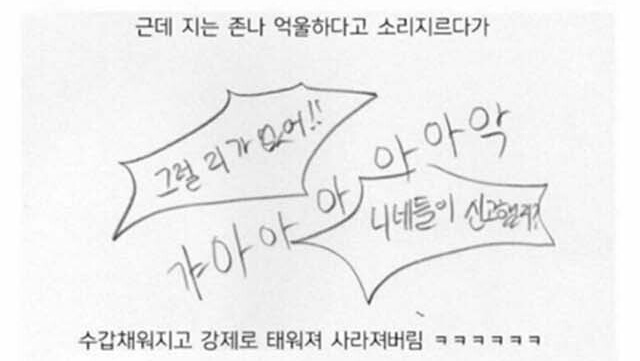 근데 지는 존나 억울하다고 소리지르다가
그럴 리가 없어!!
갸아아아야아악
니네들이 신고했지?
수갑채워지고 강제로 태워져 사라져버림 ㅋㅋㅋㅋㅋㅋ